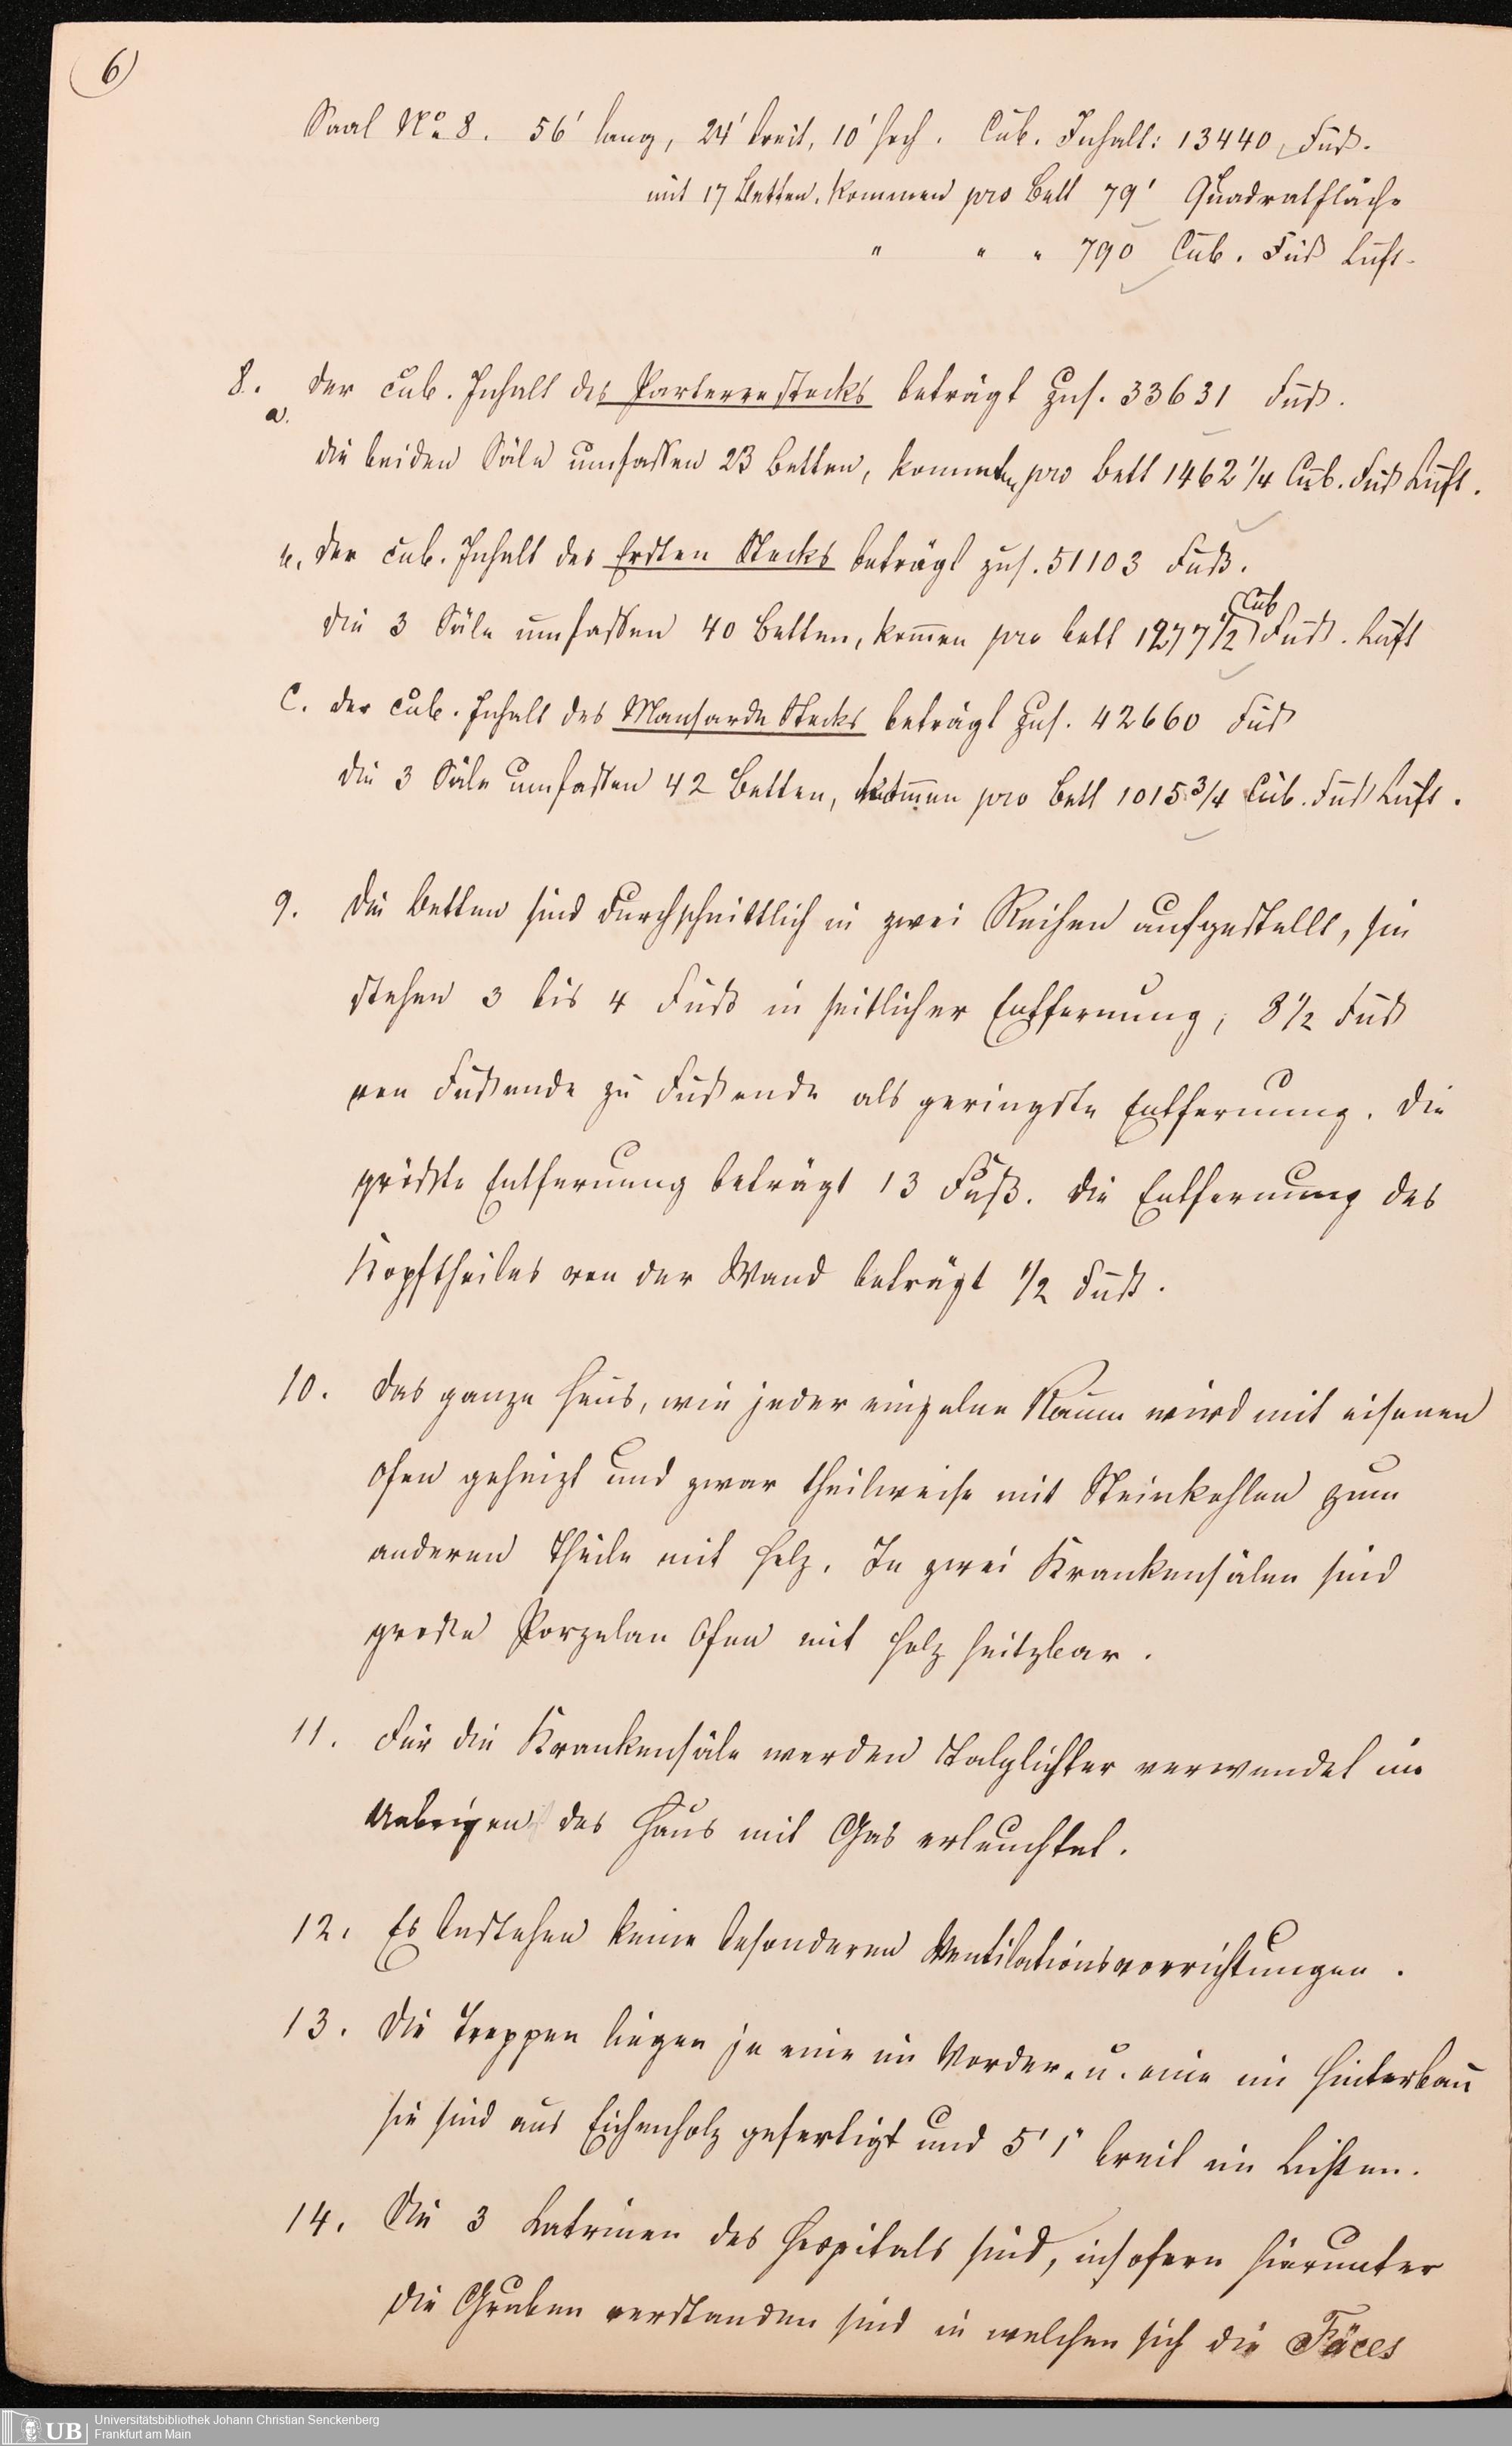 6
Saal No 8. 56' lang, 24' breit, 10' hoch. Cub. Inhalt: 13440 Fuß.
mit 17 Betten, kommen pro Bett 79' Quadratfläche
" " " 790 Cub. Fuß Luft.
8. Der cub. Inhalt des Parterrestocks beträgt zus. 33631 Fuß.
a.
die beiden Säle umfassen 23 Betten, kommen pro Bett 1462 1/4 Cub. Fuß Luft.
b. Der cub. Inhalt des Ersten Stocks beträgt zus. 51103 Fuß.
Cub
Die 3 Säle umfassen 40 Betten, kommen pro Bett 1277 1/2 Fuß. Luft
C. Der Cub. Inhalt des Mansarde Stocks beträgt zus. 42660 Fuß
Die 3 Säle umfassen 42 Betten, kommen pro Bett 1015 3/4 Cub. Fuß Luft.
9. Die Betten sind durchschnittlich in zwei Reihen aufgestellt, sie
stehen 3 bis 4 Fuß in seitlicher Entfernung, 8 1/2 Fuß
von Fußende zu Fußende als geringste Entfernung. Die
größte Entfernung beträgt 13 Fuß. Die Entfernung des
Kopftheiles von der Wand beträgt 1/2 Fuß.
10. Das ganze Haus, wie jeder einzelne Raum wird mit eisenen
Ofen geheizt und zwar theilweise mit Steinkohlen zum
anderen Theile mit Holz. In zwei Krankensälen sind
große Porzelan Ofen mit Holz heitzbar.
11. Für die Krankensäle werden Talglichter verwendet im
Uebrigen das Haus mit Gas erleuchtet.
12. Es bestehen keine besonderen Ventilationsvorrichtungen.
13. Die Treppen liegen je eine im Vorder- u. eine im Hinterbau
sie sind aus Eichenholz gefertigt und 5' 1" breit im Lichten.
14. Die 3 Latrinen des Hospitals sind, insofern hierunter
die Gruben verstanden sind in welchen sich die Fäces
UB
Universitätsbibliothek Johann Christian Senckenberg
Frankfurt am Main